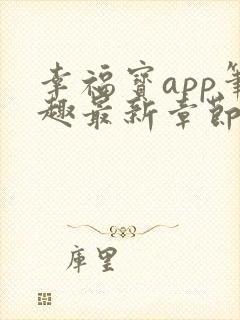 幸福宝app笔
趣最新章节
库里